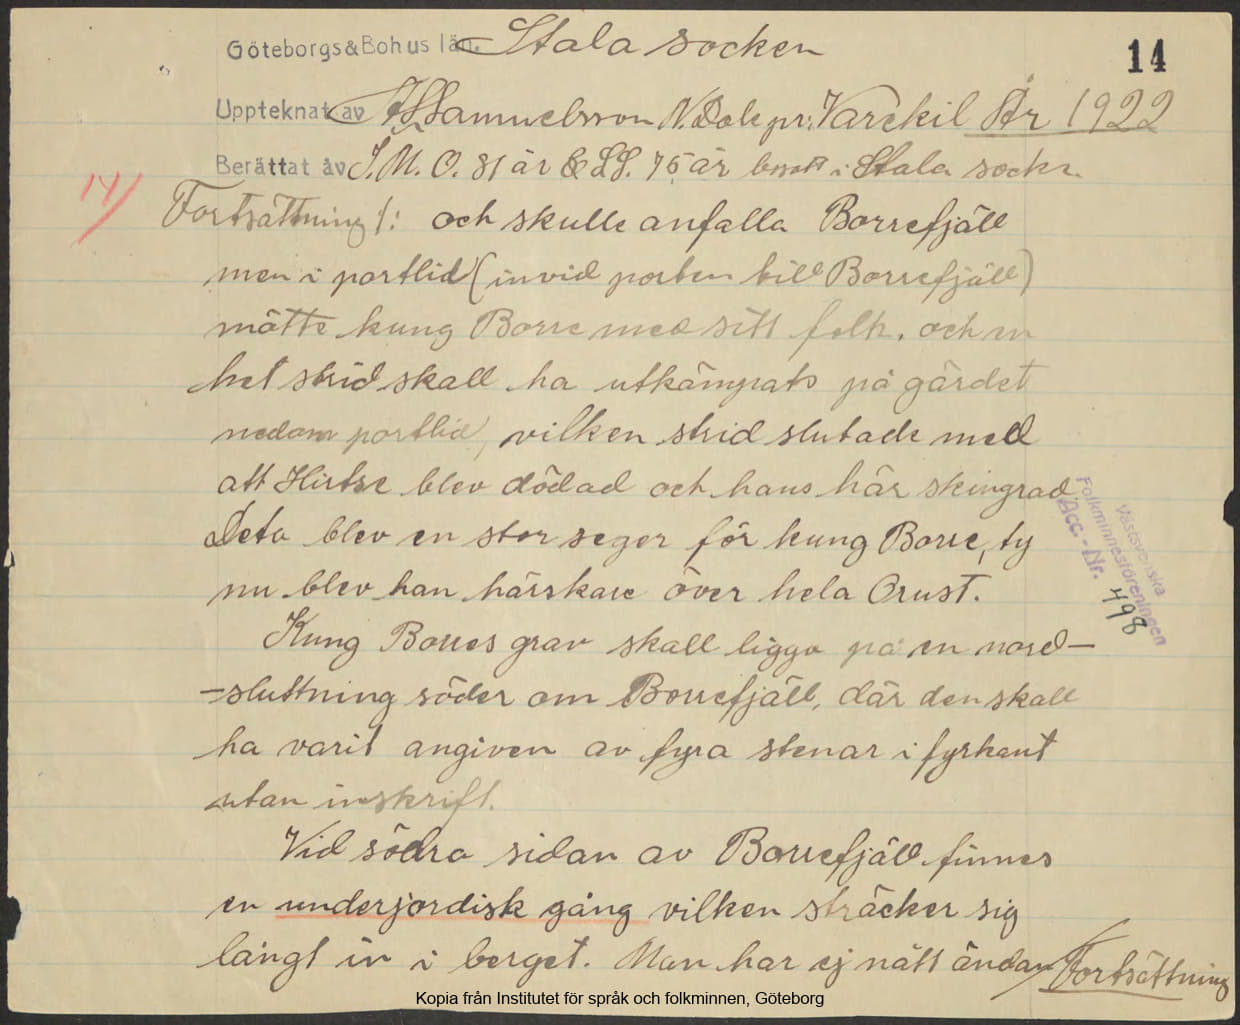 Göteborgs&Bohus län. Stala socken
14
Upptecknat av Samuelsson N. Dale pr: Varekil År 1922
Berättat av J. M. O. 81 år & L.S. 75 år bosatt i Stala sockn
14/
Fortsättning /: och skulle anfalla Borrefjäll
men i portlid (invid porten till Borrefjäll)
mötte kung Borre med sitt folk, och en
het strid skall ha utkämpats på gärdet
nedom portlid, vilken strid slutade med
att Hirtse blev dödad och hans här skingrad.
Deta blev en stor seger för kung Borre, ty
nu blev han härskare över hela Orust.
Kung Borres grav skall ligga på en nord-
-sluttning söder om Borrefjäll, där den skall
ha varit angiven av fyra stenar i fyrkant
utan inskrift.
Vid södra sidan av Borrefjäll finnes
en underjordisk gång vilken sträcker sig
långt in i berget. Man har ej nått ändan
Fortsättning
Västsvenska
Folkminnesföreningen
Acc.-Nr. 498
Kopia från Institutet för språk och folkminnen, Göteborg